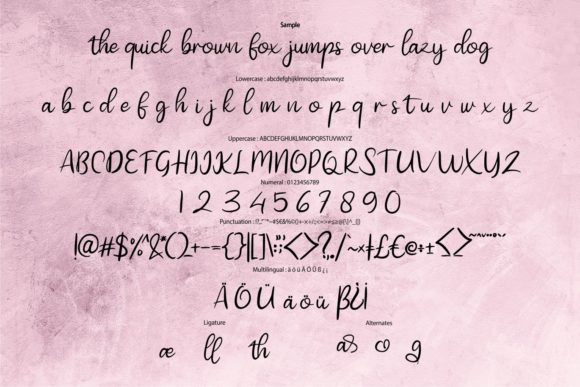 Sample
the quick brown fox jumps over lazy dog
Lowercase : abcdefghijklmnopqrstuvwxyz
a b c d e f g h i j k l m n o p q r s t u v w x y z
Uppercase : ABCDEFGHIJKLMNOPQRSTUVWXYZ
ABCDEFGHIJKLMNOPQRSTUVWXYZ
Numeral : 0123456789
1 2 3 4 5 6 7 8 9 0
Punctuation :
!@#$%^&*()_+-={}|[]\:;<>?,./~×‡£€
Multilingual : ä ö ü Ä Ö Ü ß ¿ ¡
Ä Ö Ü ä ö ü
Ligature Alternates
æ ll th